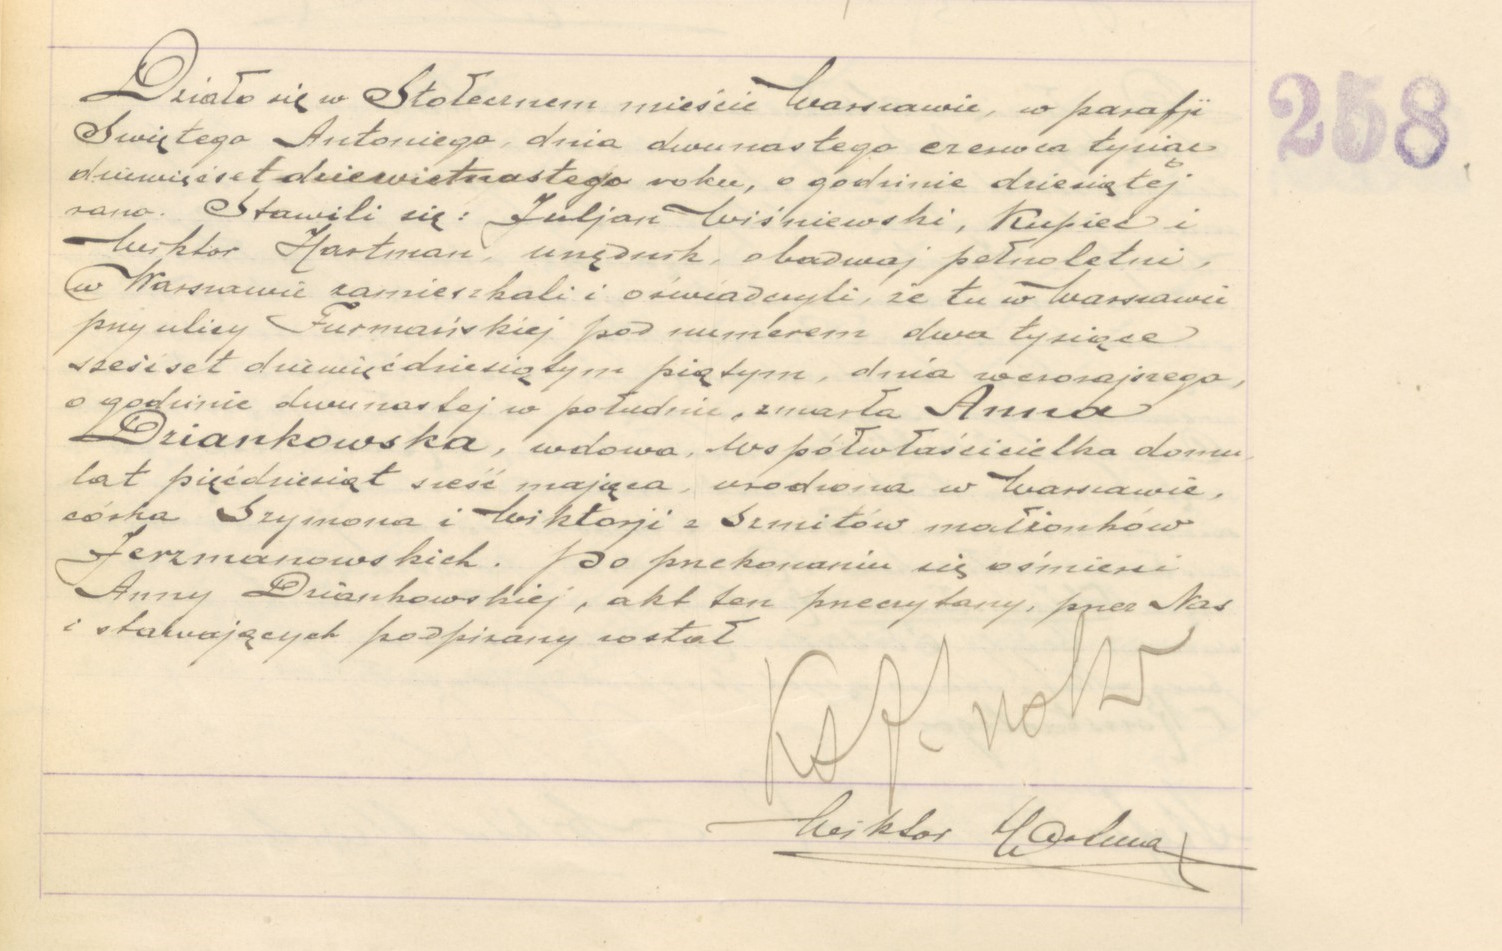 Działo się w Stołecznem mieście Warszawie, w parafji
Swiętego Antoniego, dnia dwunastego czerwca tysiąc
dziewięćset dziewietnastego roku, o godzinie dziesiątej
rano. Stawili się: Juljan Wiśniewski, Kupiec i
Wiktor Hartman, urzędnik, obadwaj pełnoletni,
w Warszawie zamieszkali i oświadczyli, że tu w Warszawie
przy ulicy Furmańskiej pod numerem dwa tysiące
sześćset dziewięćdziesiątym piątym, dnia wczorajszego,
o godzinie dwunastej w południe, zmarła Anna
Dziankowska, wdowa, współwłaścicielka domu
lat pięćdziesiąt sześć mająca, urodzona w Warszawie,
córka Szymona i Wiktorji z Szmitów małżonków
Jerzmanowskich. Po przekonaniu się o śmierci
Anny Dziankowskiej, akt ten przeczytany, przez Nas
i stawających podpisany został
Ks
Wiktor Hartman
258